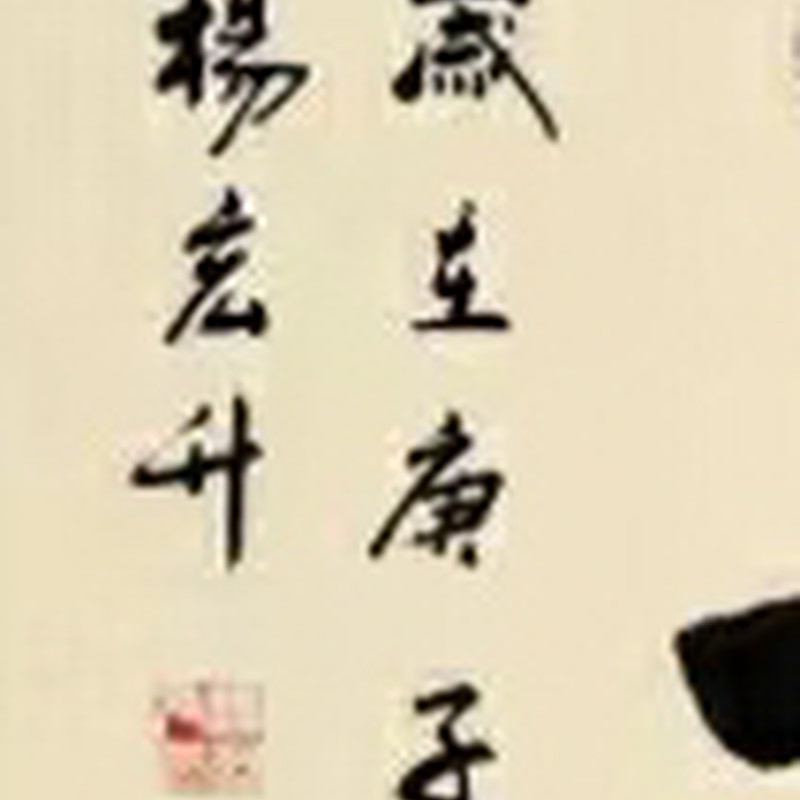 歲在庚子
楊宏升